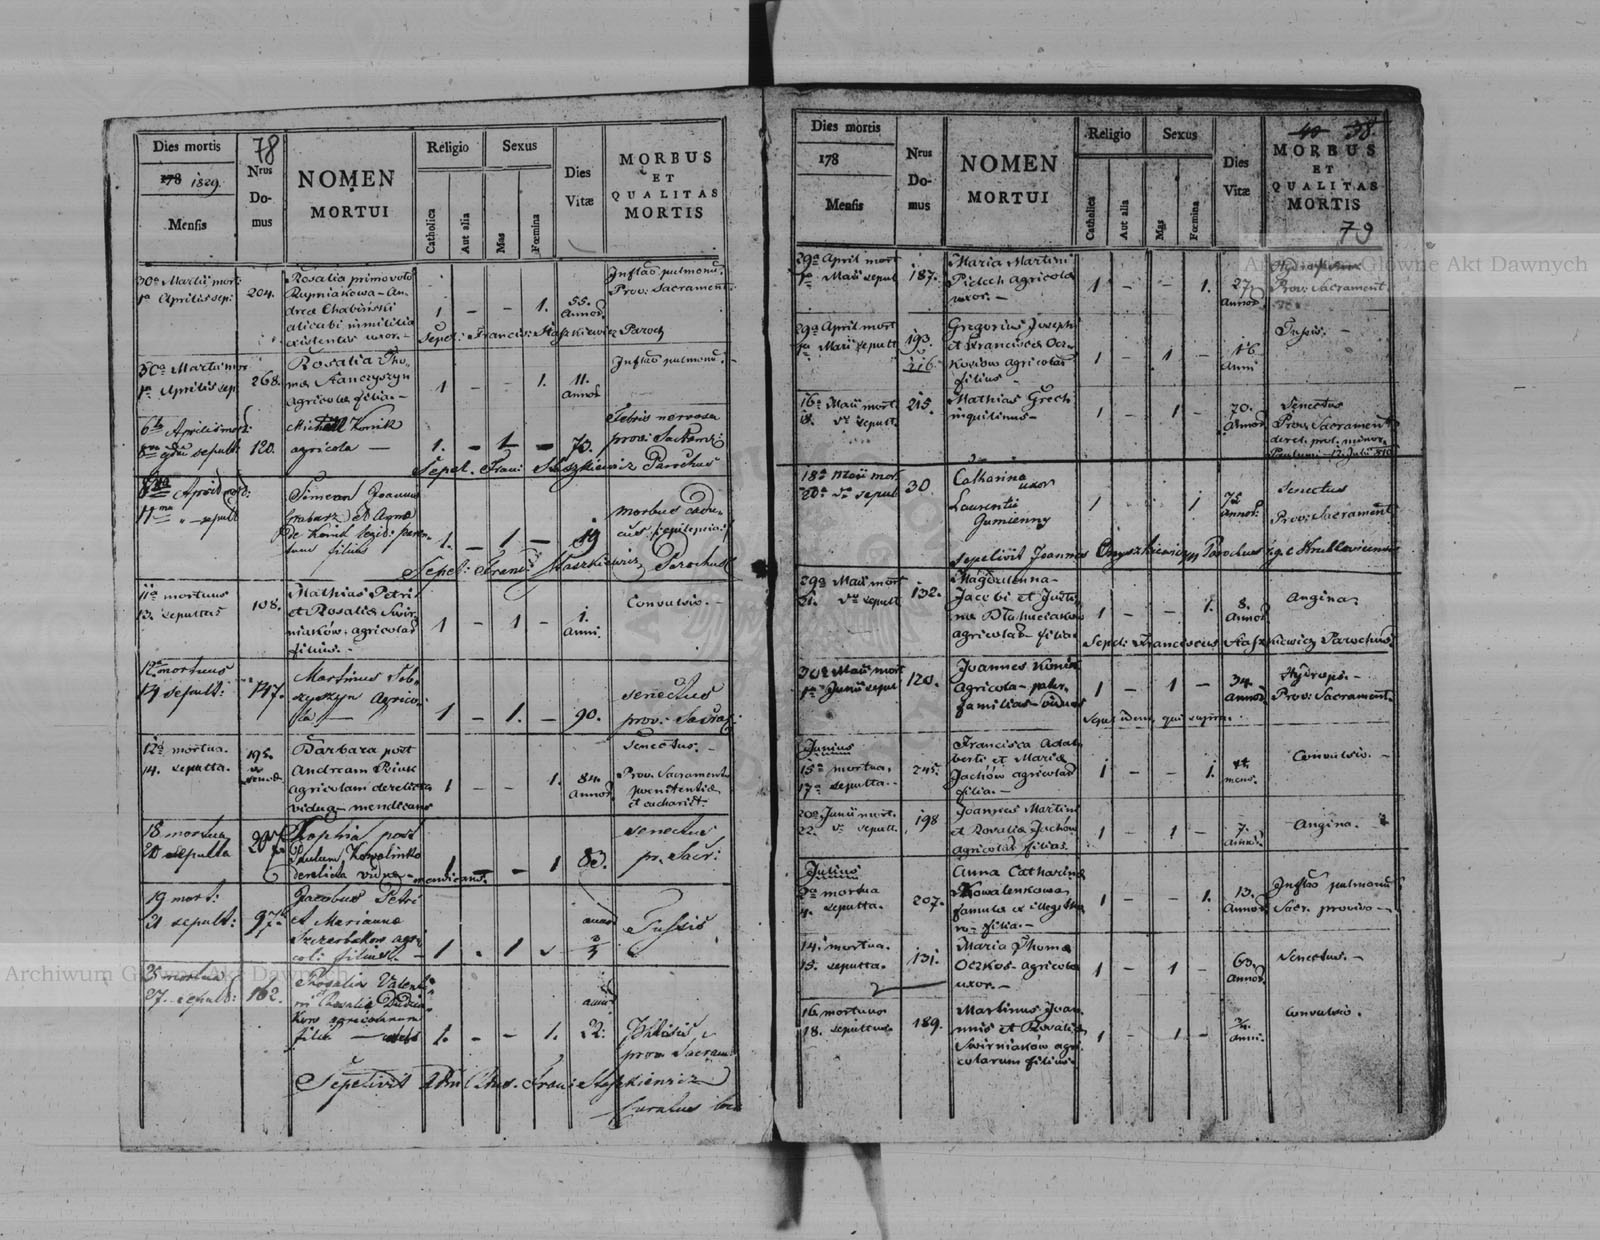 78
Dies mortis
178 1829.
Mensis
Nrus
Do-
mus
NOMEN
MORTUI
Religio
Catholica
Aut alia
Sexus
Mas
Fœmina
Dies
Vitæ
MORBUS
ET
QUALITAS
MORTIS
30a Martii mort:
1a Aprilis sep:
204.
Rosalia primovoto
Rupniakowa - An-
drea Chabiński
alicubi in militia
existentis uxor. -
1 - - 1.
55.
Annor.
Inflao pulmonu.
Prov: Sacrament.
Sepel: Francis: Staszkiewicz Paroch
30a Martii mor
1a Aprilis sep.
268.
Rosalia Tho-
mæ Stanczyszyn
agricolæ filia. -
1 - - 1.
11.
Annor
Inflao pulmonu. -
6ta Aprilis mort:
8va ejdu sepult.
120.
Michael Konik
agricola -
1. - 1 - 73.
Febris nervosa
prov: Sacram:
Sepel. Franc: Staszkiewicz Parochus
April mort:
11ma " - sepult
Simeon Joannis
Grabarz et Agnæ
de Konik legit: paren-
tum filius
1. - 1 - 19
morbus cadu-
cus, epilepsia
Sepel: Franc: Staszkiewicz Parochus
11a mortuus
13. sepultus
108.
Mathias Petri
et Rosaliæ Swir-
niaków agricolar
filius. -
1 - 1 -
1.
Anni.
Convulsio. -
12a mortuus
14 sepult:
147.
Martinus Seb-
zyszyn Agrico-
la -
1 - 1. - 90.
senectus
prov: Sacra:
12a mortua.
14. sepulta.
195.
Barbara post
Andream Piuk
agricolam derelicta
vidua - mendicans
1 - - 1.
84.
Annor.
Senectus. -
Prov. Sacrament
pœnitentiæ
et eucharist.
18 mortua
20 sepulta
207.
Sophia post
Paulum Kowalinko
derelicta vidua - mendicans.
1 - - 1 83.
senectus
pr. Sacr:
19 mort:
21 sepult:
97.
Jacobus Petri
et Mariannæ
Szczerbakow agri-
col: filius. -
1 . 1 -
annor
3
Tussis
25 mortua
27. sepult:
162.
Rosalia Valen-
ni et Rosaliæ Dudzia-
kow agricolarum
filia - cœlebs
1. - - 1.
annor
22.
Phtisis
prov. Sacram:
Sepelivit Franc: Staszkiewicz
Curatus loci
Dies mortis
178
Mensis
Nrus
Do-
mus
NOMEN
MORTUI
Religio
Catholica
Aut alia
Sexus
Mas
Fœmina
Dies
Vitæ
40 38.
MORBUS
ET
QUALITAS
MORTIS
79
29a April mort
1a Maii sepul.
187.
Maria Martini
Pietoch agricola
uxor. -
1 - - 1.
27
Annor.
Prov: Sacrament.
29a April mort
1a Maii sepult
193.
216.
Gregorius Josephi
et Franciscæ Ocz-
kosiów agricolar
filius -
1 - 1 -
16
Anni
Tussis. -
16a Maii mort
18. " sepult.
215.
Mathias Grech
inquilinus -
1 - 1 -
70.
Annor.
Senectus
Prov. Sacrament
18a Maii mor.
20a " sepul
30
Catharina
uxor
Laurentii
Gumienny
1 1
75
Annor.
Senectus
Prov: Sacrament
Sepelivit Joannes Onyszkiewicz Parochus r.g.c Krukoviensis
29a Maii mort
31. " sepult
132.
Magdalena -
Jacobi et Justi-
næ Dłahuciaków
agricolar - filia
1 - - 1.
8.
Annor
Angina.
Sepel: Franciscus Staszkiewicz Parochus.
30a Maii mort
1a Junii sepul
120.
Joannes Konik
agricola - pater
familias - viduus
1 - 1 -
34.
Annor.
Hydrops. -
Prov: Sacrament.
Sepel idem, qui supra.
Junius
15a mortua.
17a sepulta.
245.
Francisca Adal-
berti et Mariæ
Jachów agricolar
filia. -
1 - - 1.
mens.
Convulsio. -
20a Junii mort.
22. " sepult.
198
Joannes Martini
et Rosalia Jachów
agricolar filius.
1 - 1 -
7.
annor.
Angina.
Julius
2a mortua
4. sepulta.
207.
Anna Catharina
Kowalenkowa
famula ex illegitim
ro - filia. -
1 - - 1.
13.
Annor.
Inflao pulmonu
Sacr. proviso -
14. mortua.
15. sepulta.
131.
Maria Thomæ
Oczkos - agricola
uxor. -
1 - 1 -
63.
Annor.
Senectus. -
16. mortuus
18. sepultus.
189.
Martinus Joan-
nis et Rosaliæ
Swirniaków agri-
colarum filius.
1 1 -
anni.
Convulsio.
Archiwum Główne Akt Dawnych
Archiwum Główne Akt Dawnych